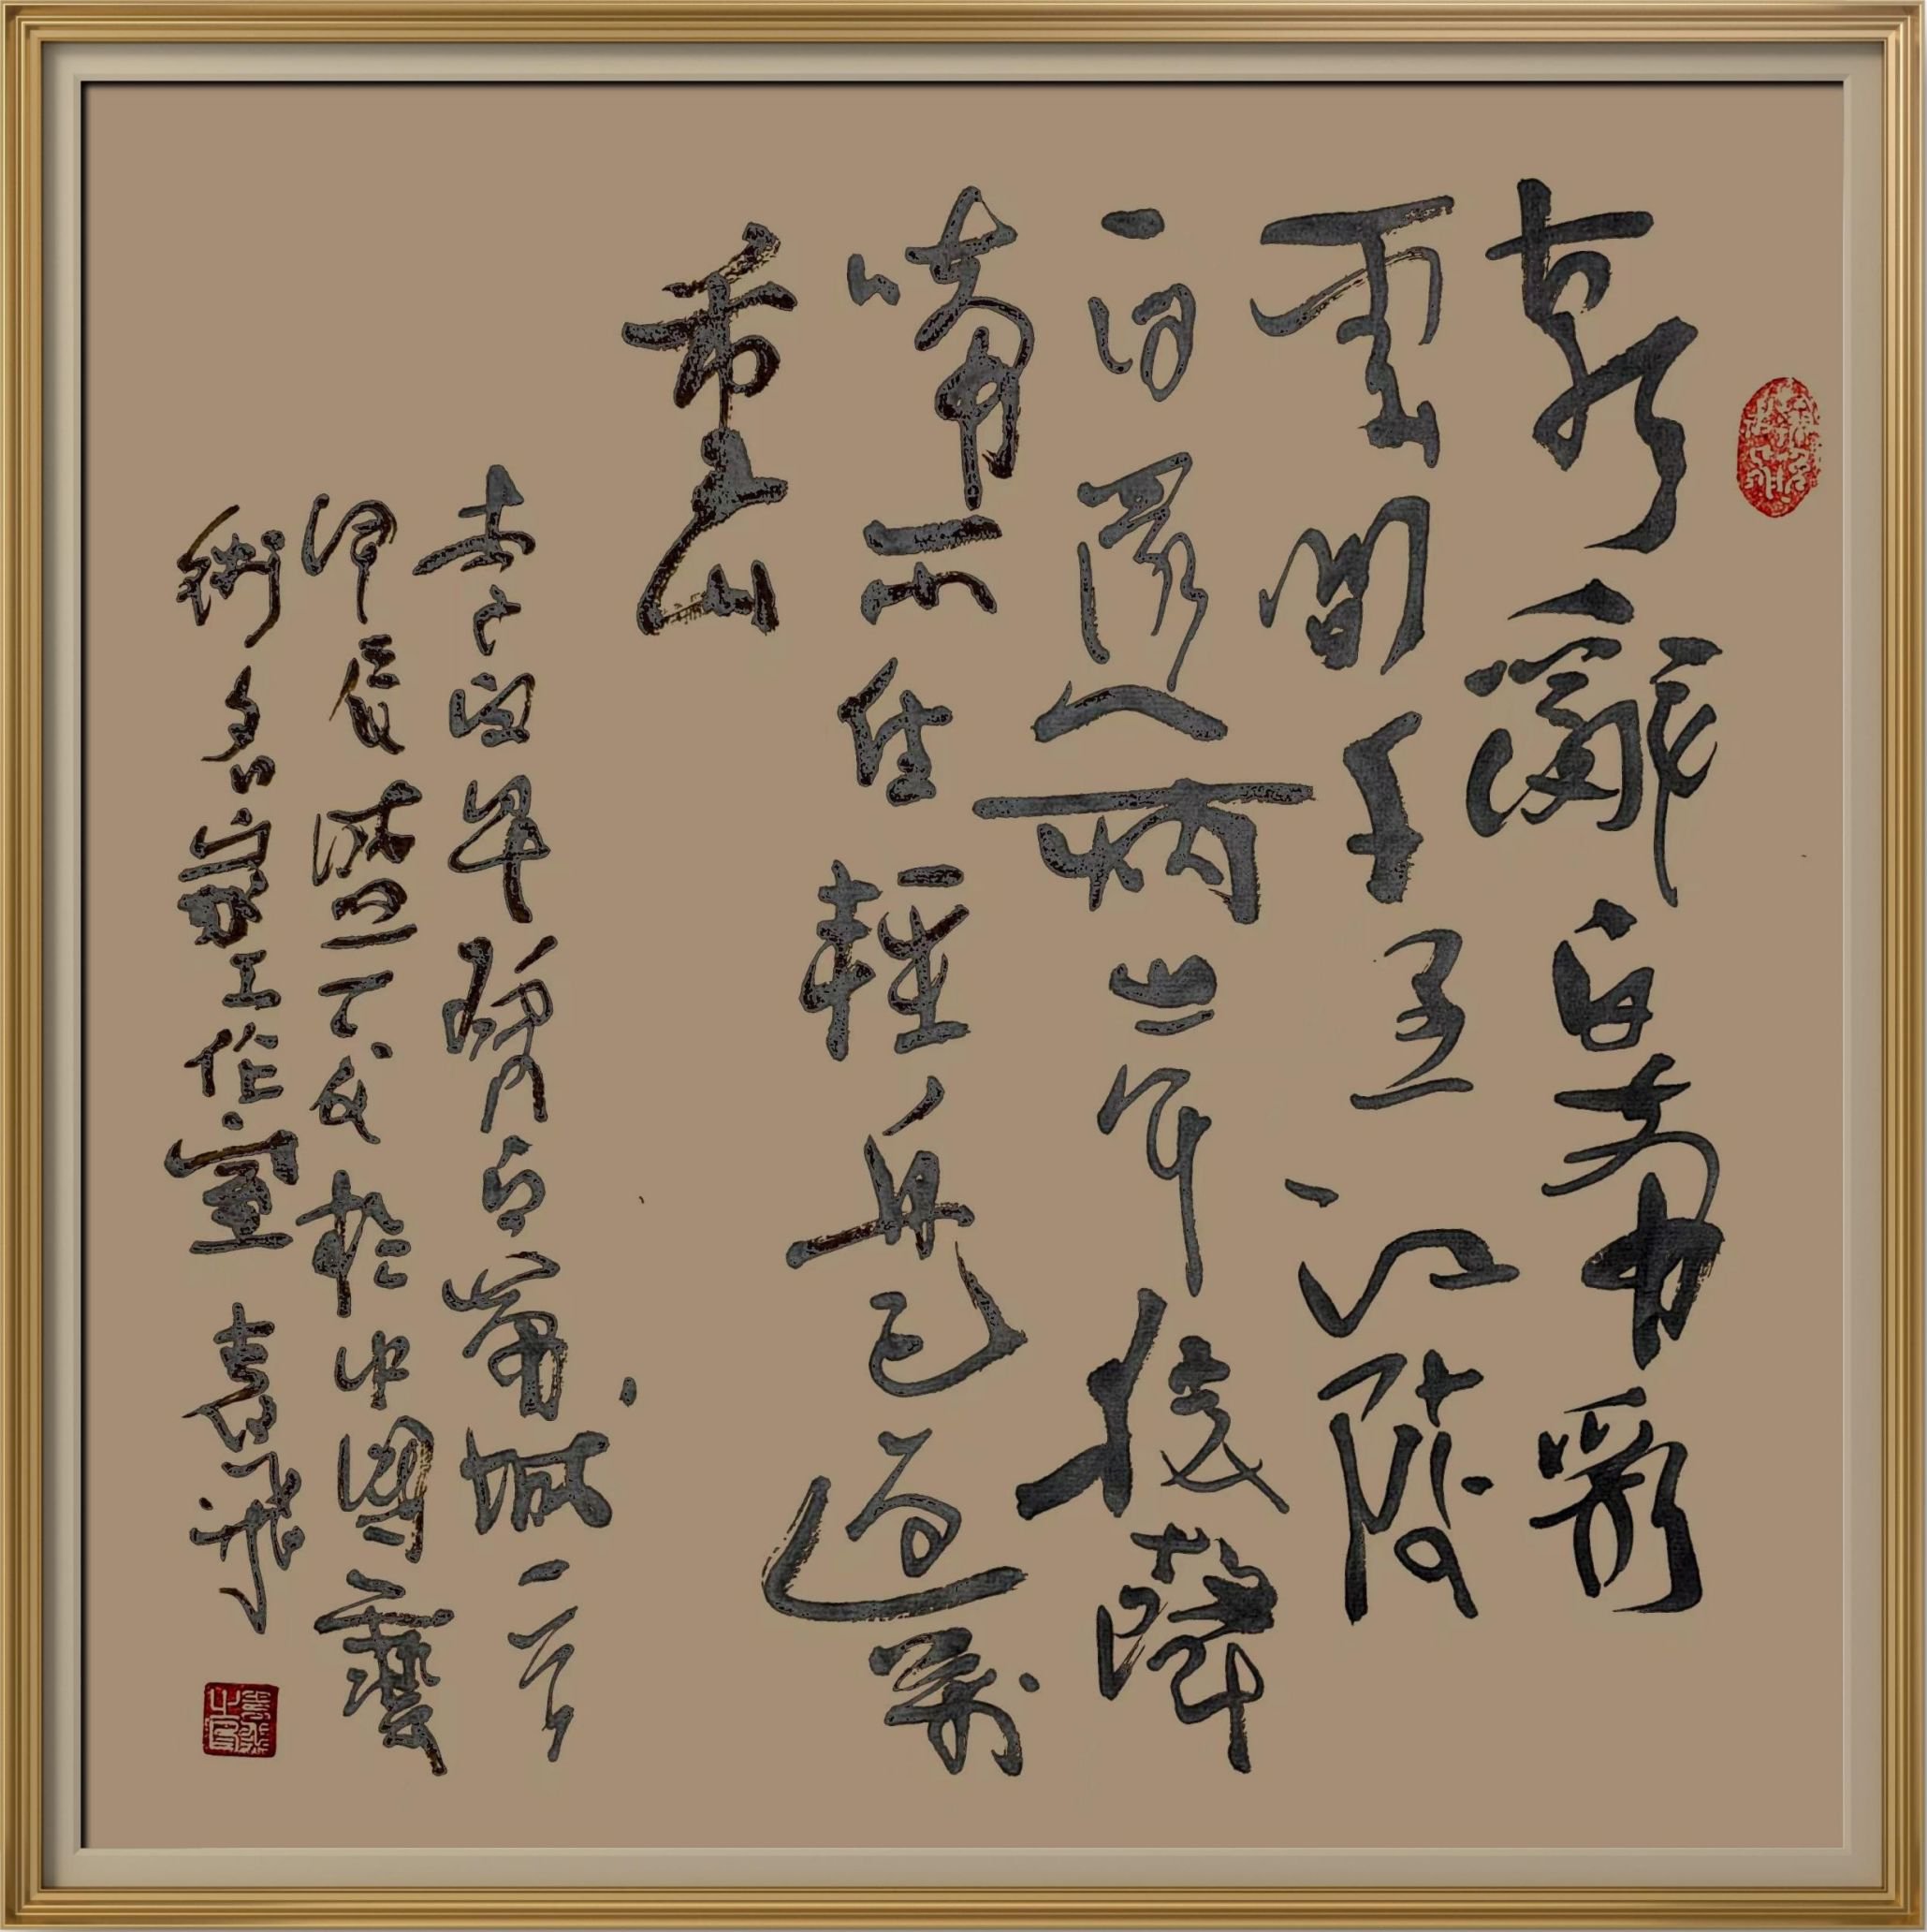 朝辭白帝彩
雲間千里江陵
一日還兩岸猿聲
啼不住輕舟已過萬
重山
李早發白帝城一首
甲辰盛夏於中國藝
術名家工作室 飛